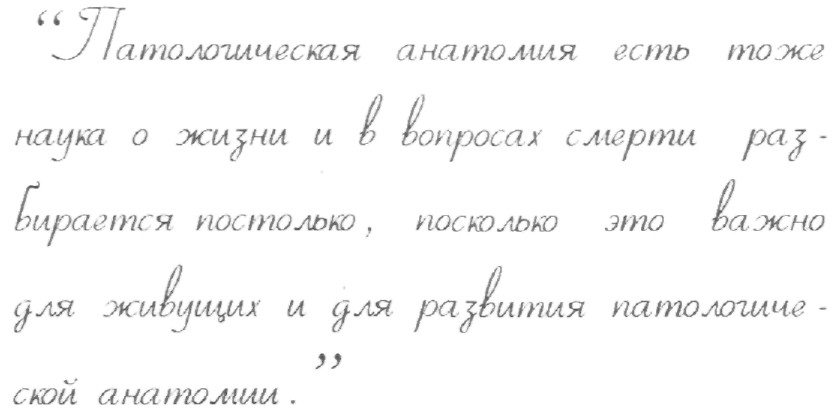 “Патологическая анатомия есть тоже
наука о жизни и в вопросах смерти раз-
бирается постолько, посколько это важно
для живущих и для развития патологиче-
ской анатомии.”